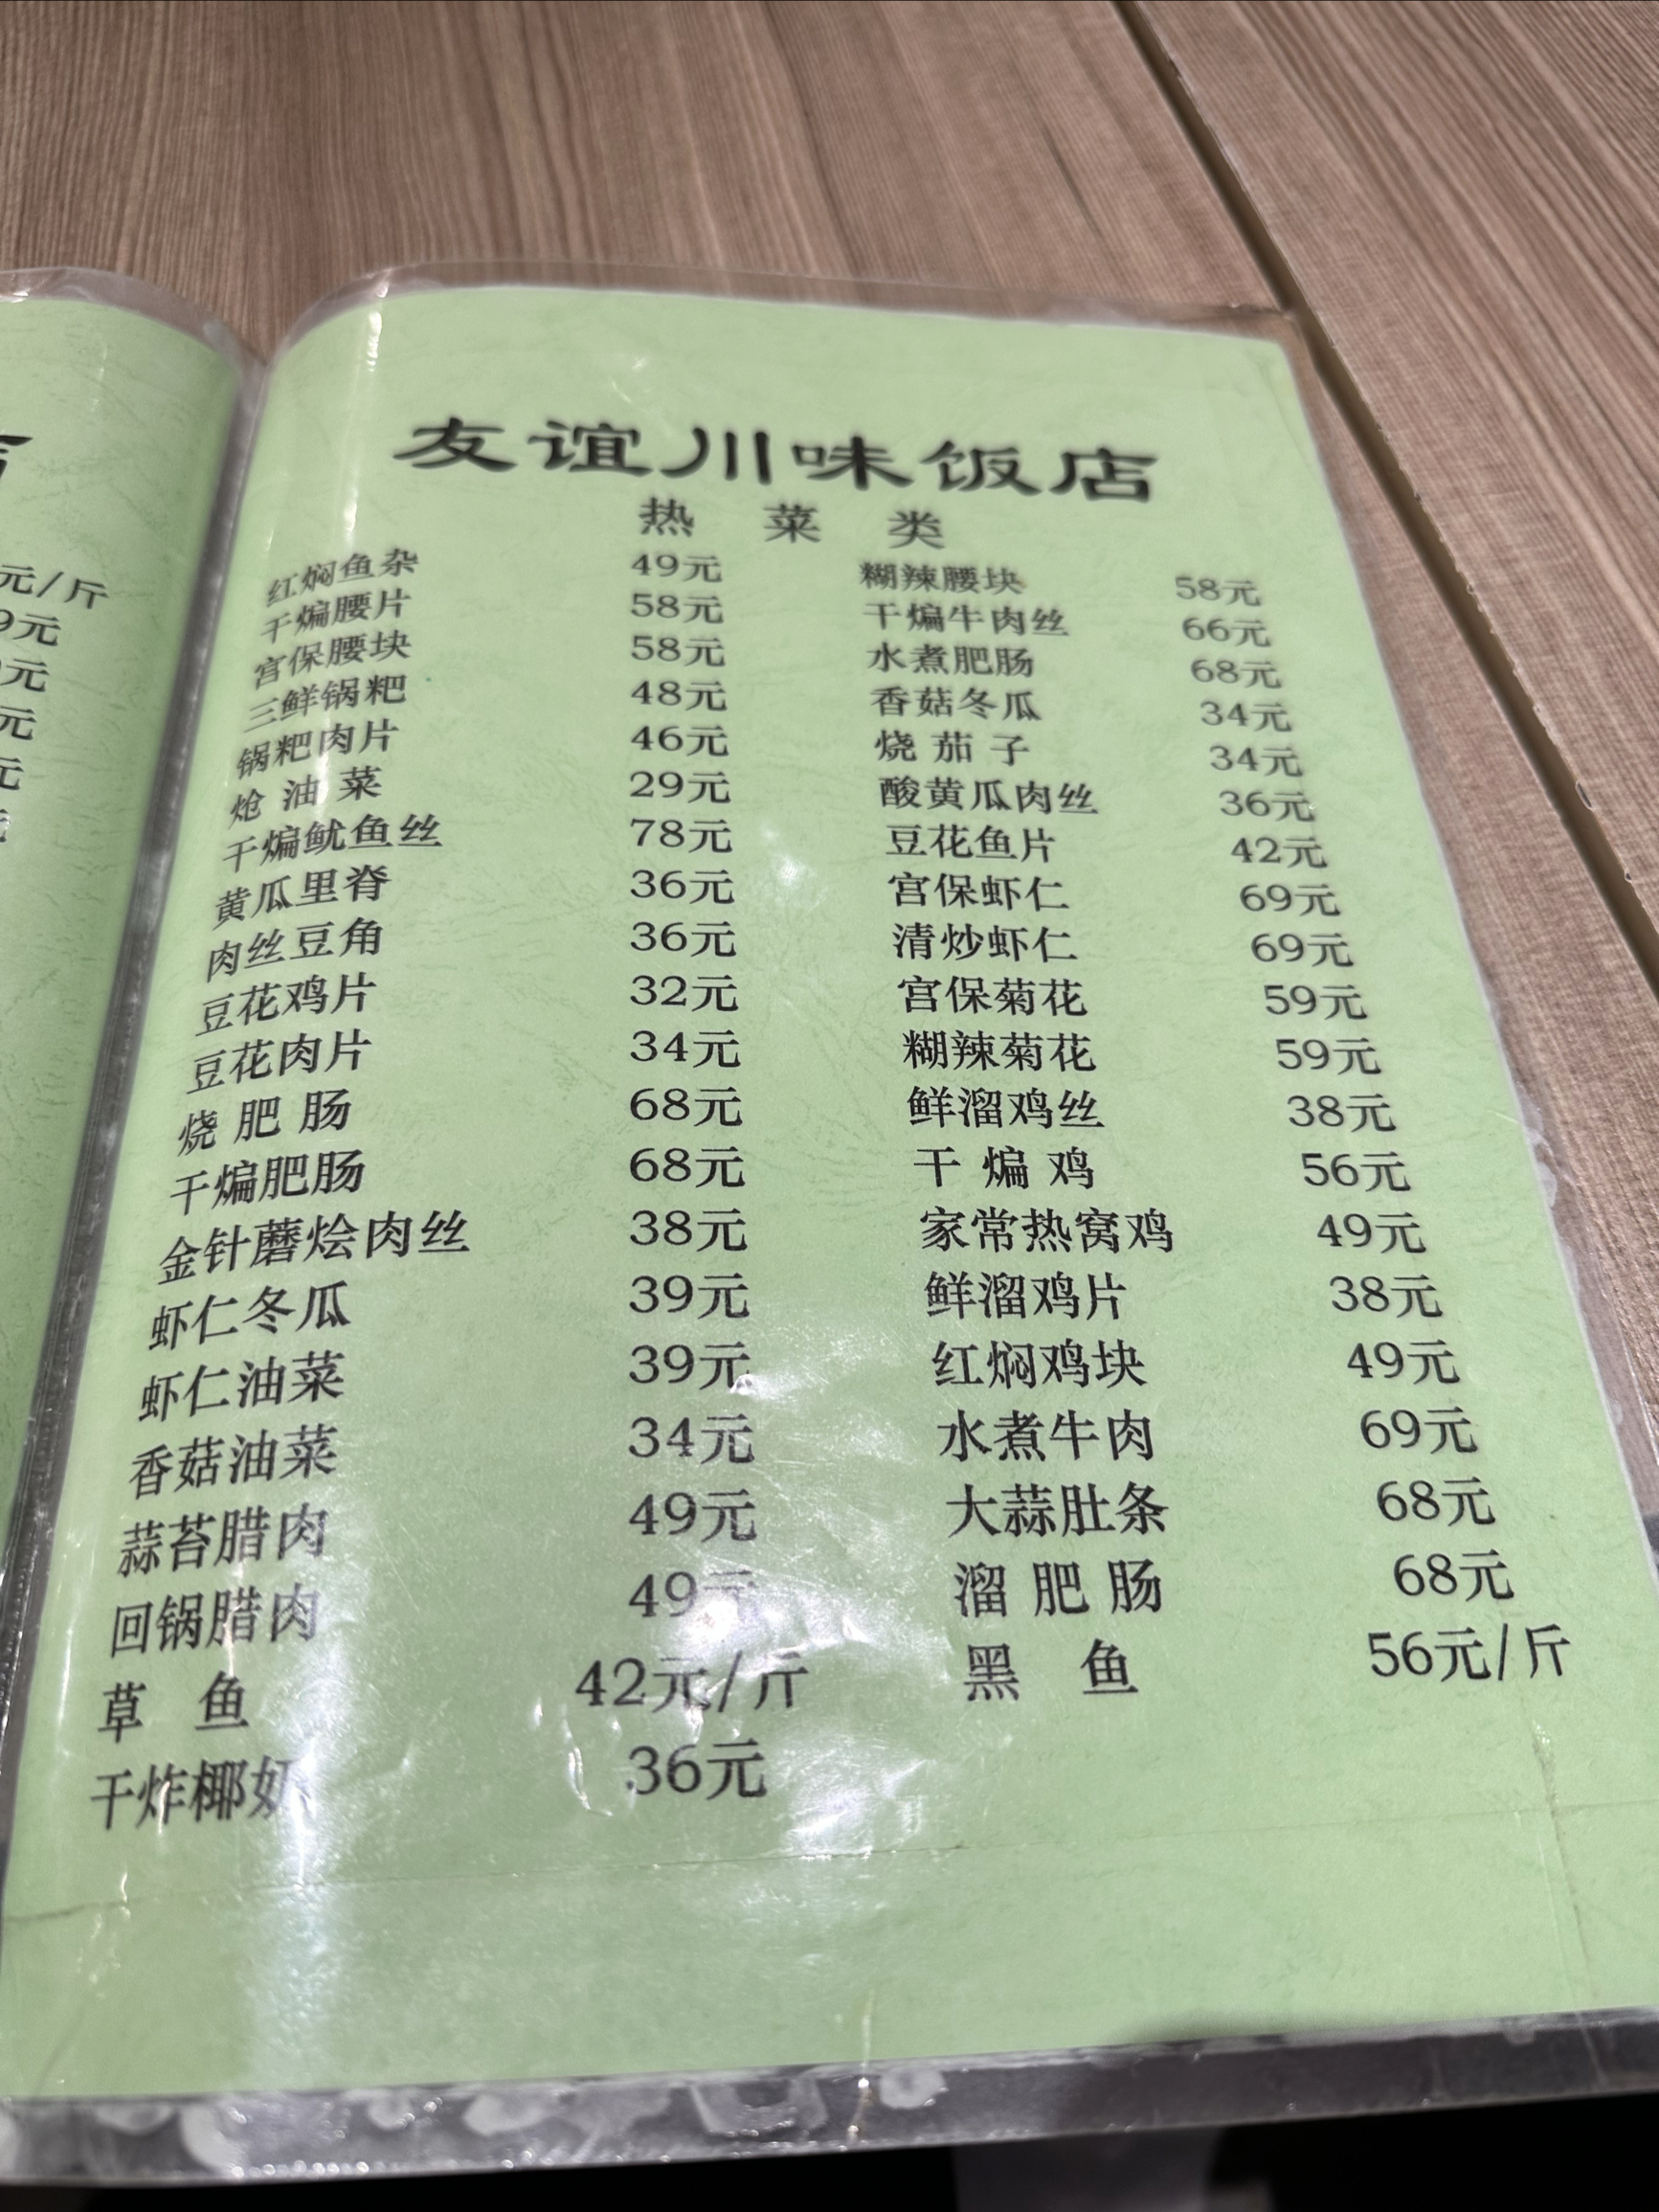 元/斤
9元
元
元
元
友谊川味饭店
热 菜 类
红焖鱼杂 49元 糊辣腰块 58元
干煸腰片 58元 干煸牛肉丝 66元
宫保腰块 58元 水煮肥肠 68元
三鲜锅粑 48元 香菇冬瓜 34元
锅粑肉片 46元 烧茄子 34元
炝油菜 29元 酸黄瓜肉丝 36元
干煸鱿鱼丝 78元 豆花鱼片 42元
黄瓜里脊 36元 宫保虾仁 69元
肉丝豆角 36元 清炒虾仁 69元
豆花鸡片 32元 宫保菊花 59元
豆花肉片 34元 糊辣菊花 59元
烧肥肠 68元 鲜溜鸡丝 38元
干煸肥肠 68元 干煸鸡 56元
金针蘑烩肉丝 38元 家常热窝鸡 49元
虾仁冬瓜 39元 鲜溜鸡片 38元
虾仁油菜 39元 红焖鸡块 49元
香菇油菜 34元 水煮牛肉 69元
蒜苔腊肉 49元 大蒜肚条 68元
回锅腊肉 49元 溜肥肠 68元
草鱼 42元/斤 黑鱼 56元/斤
干炸椰奶 36元